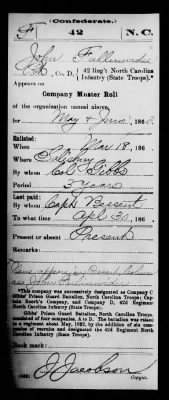 (Confederate.)
F 42 N.C.
John
Co. D, 42 Reg't North Carolina
Infantry (State Troops).*
Appears on
Company Muster Roll
of the organization named above,
for May & June, 186
Enlisted:
When Mar 18, 186
Where Salisbury
By whom Col Gibbs
Period 3 years
Last paid:
By whom Capt
To what time Apl 30, 186
Present or absent Present
Remarks:
Name appears in
as John
*This company was successively designated as Company C
Gibbs' Prison Guard Battalion, North Carolina Troops; Cap-
tain Company, and Company D, 42d Regiment
North Carolina Infantry (State Troops).
Gibbs' Prison Guard Battalion, North Carolina Troops,
consisted of four companies, A to D. The battalion was raised
to a regiment about May, 1862, by the addition of six com-
panies or recruits and designated as the 42d Regiment North
Carolina Infantry (State Troops).
Book mark:
J. Jacobson
Copyist.